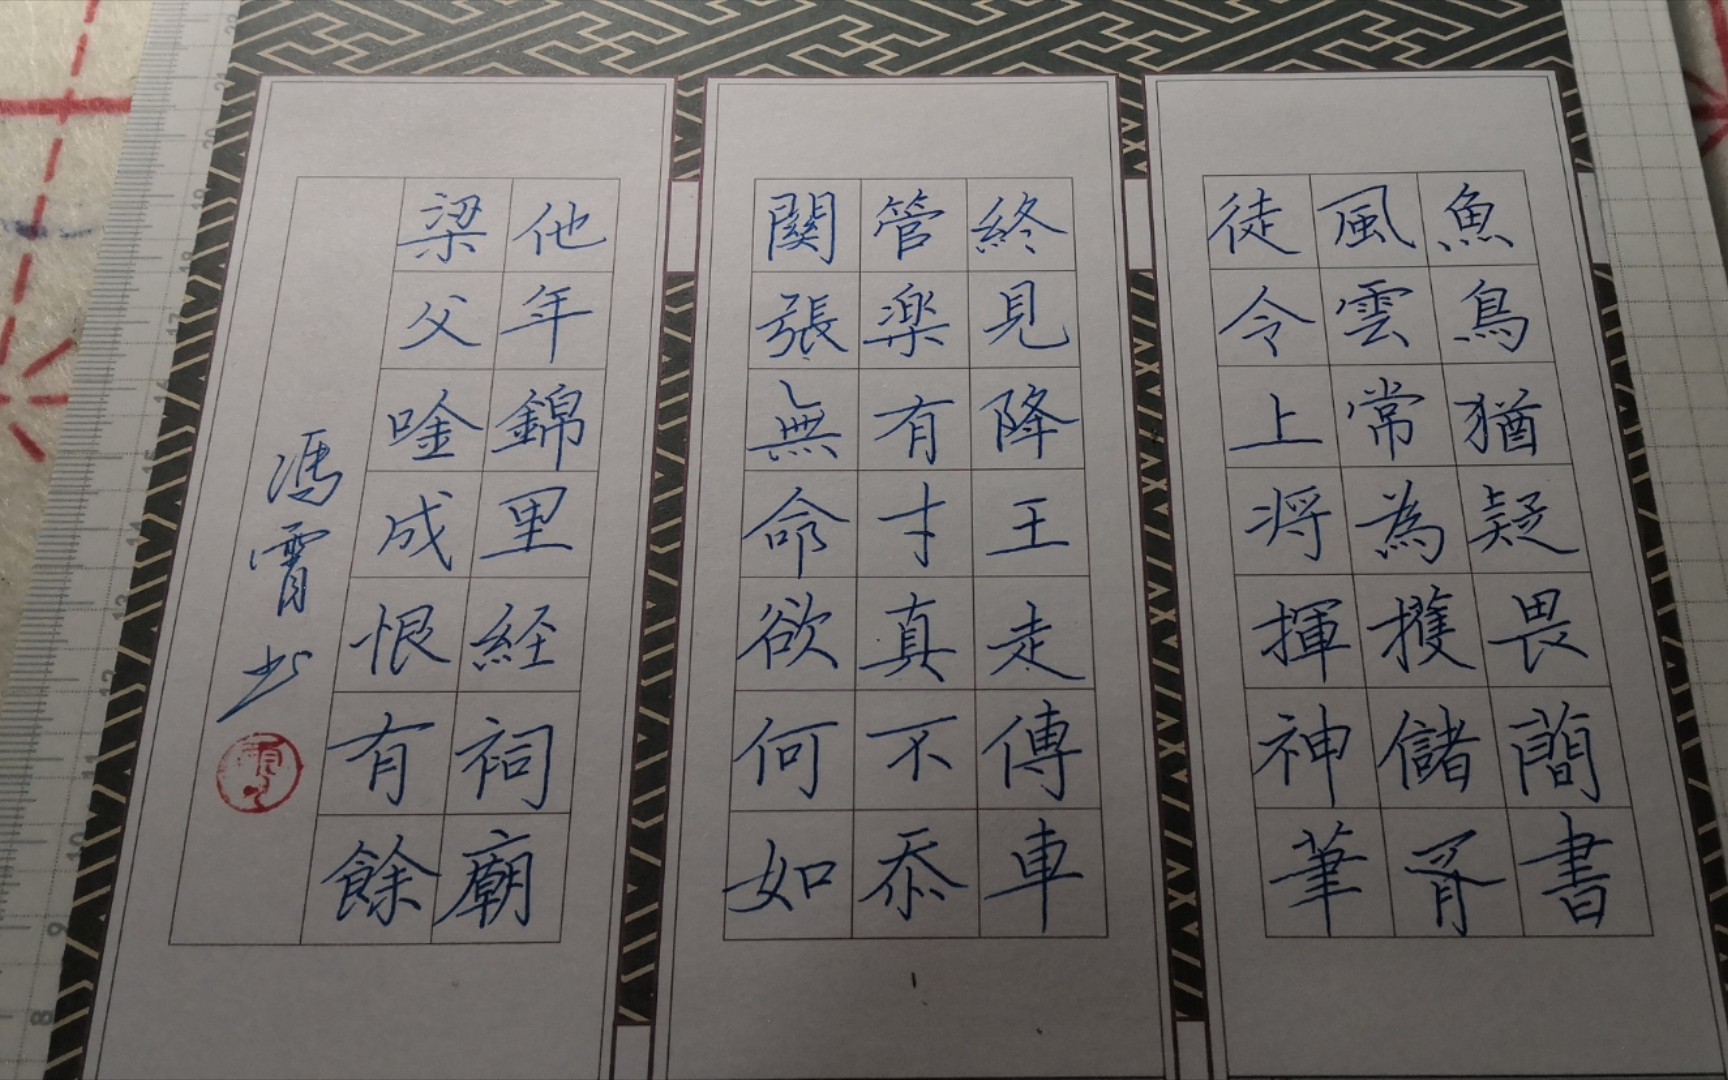 魚鳥猶疑畏簡書
風雲常為擭儲胥
徒令上将揮神筆
終見降王走傳車
管楽有才真不忝
關張無命欲何如
他年錦里経祠廟
梁父唫成恨有餘
馮霄书